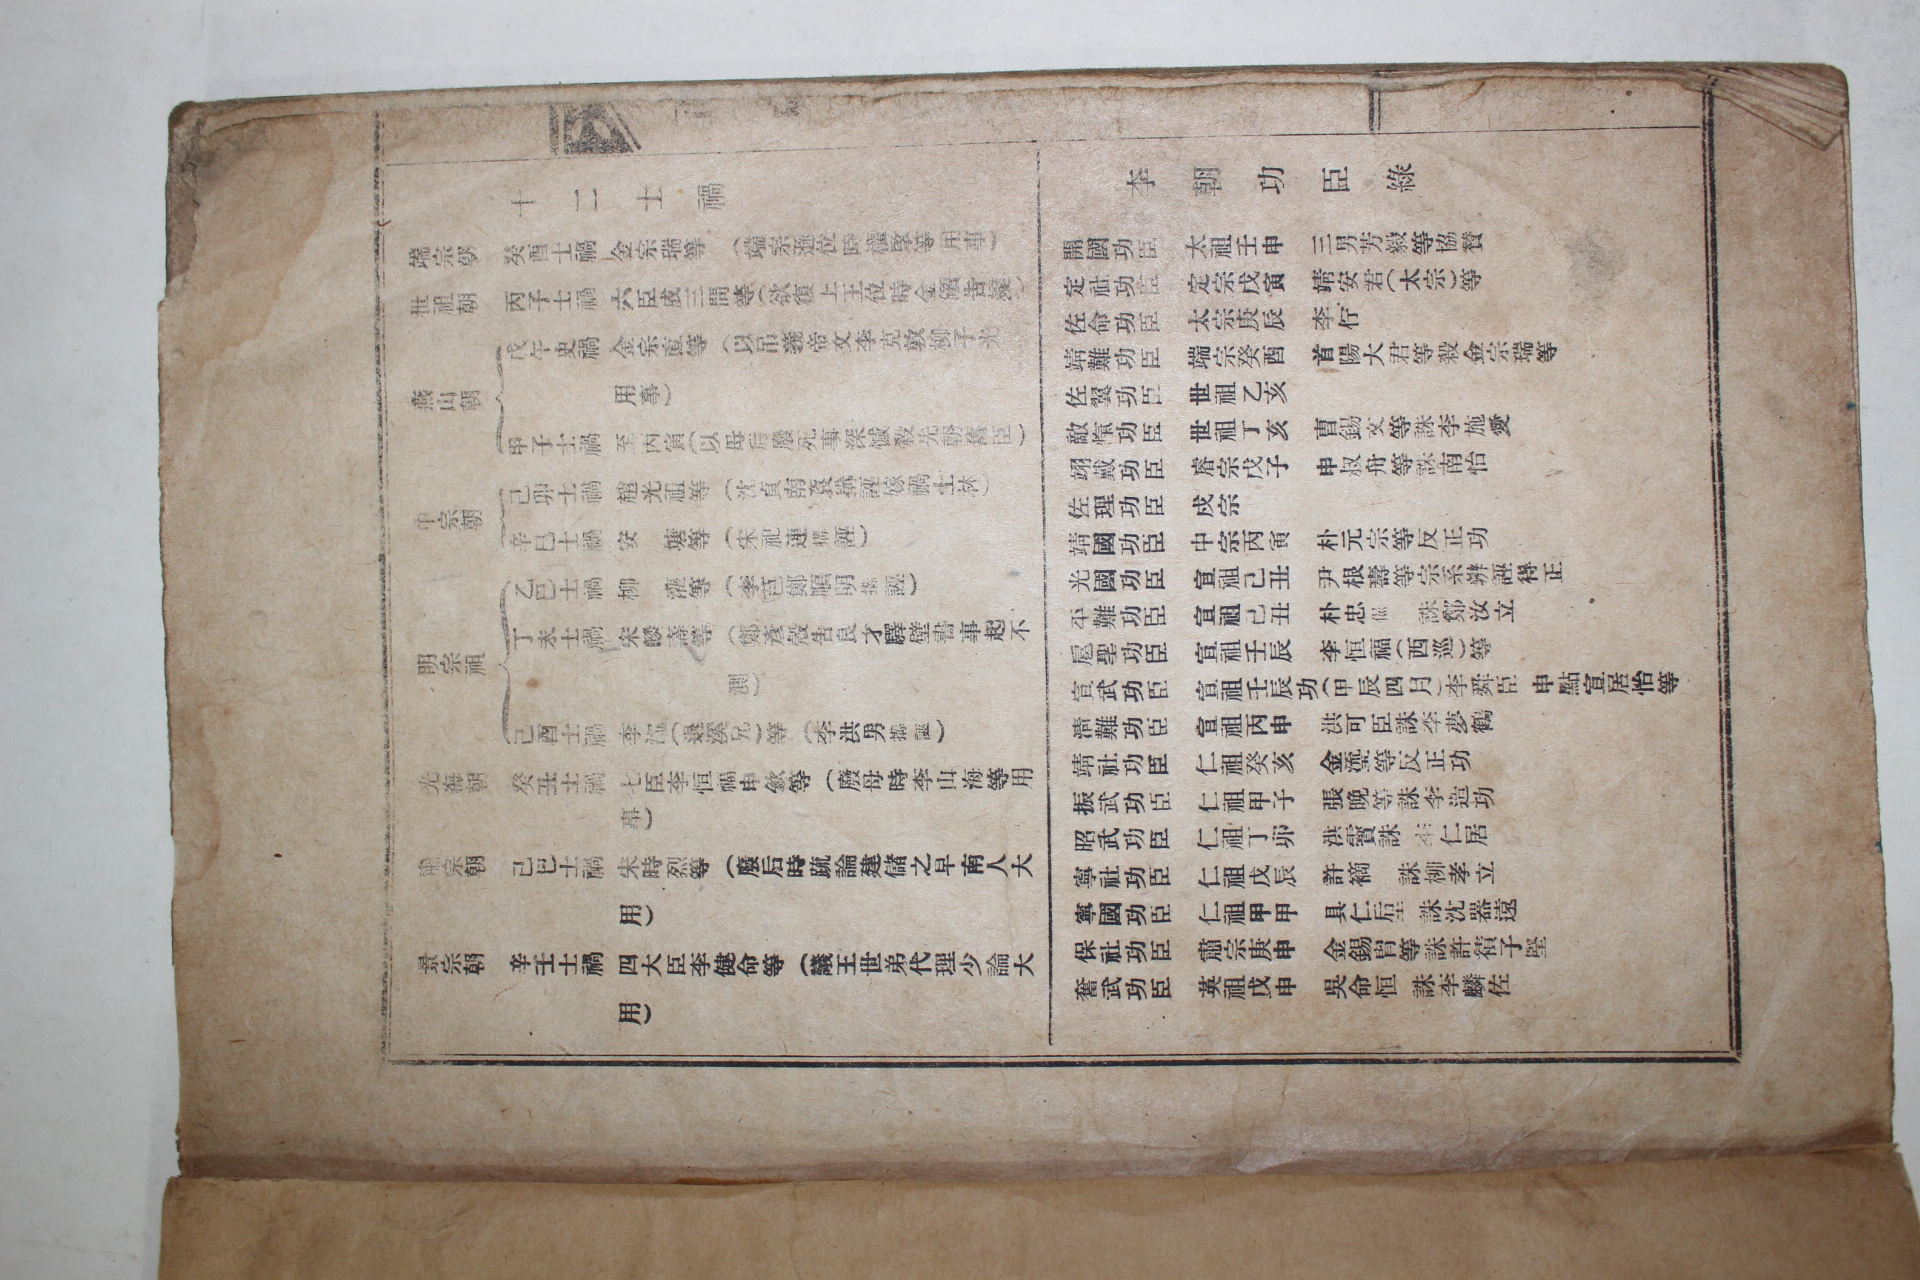 十二士禍
端宗朝 癸酉士禍 金宗瑞等 (端宗遜位時權擥等用事)
世祖朝 丙子士禍 六臣成三問等(欲復上王位時金礩告變)
燕山朝
戊午史禍 金宗直等 (以吊義帝文李克敦柳子光
用事)
甲子士禍 至丙寅(以母后廢死事深憾殺先朝舊臣)
中宗朝
己卯士禍 趙光祖等 (沈貞南袞搆誣嫁禍士林)
辛巳士禍 安 塘等 (宋祀連搆誣)
明宗祖
乙巳士禍 柳 灌等 (李芑鄭順朋搆誣)
丁未士禍 宋麟壽等 (鄭彥殼告良才驛壁書事起不
測)
己酉士禍 李瀣(退溪兄)等 (李洪男搆誣)
光海朝 癸丑士禍 七臣李恒福申欽等 (廢母時李山海等用
事)
肅宗朝 己巳士禍 宋時烈等 (廢后時疏論建儲之早南人大
用)
景宗朝 辛壬士禍 四大臣李健命等 (議王世弟代理少論大
用)
李朝功臣綠
開國功臣 太祖壬申 三男芳毅等協贊
定社功臣 定宗戊寅 靖安君(太宗)等
佐命功臣 太宗庚辰 李佇
靖難功臣 端宗癸酉 首陽大君等殺金宗瑞等
佐翼功臣 世祖乙亥
敵愾功臣 世祖丁亥 曺錫文等誅李施愛
翊戴功臣 睿宗戊子 申叔舟等誅南怡
佐理功臣 成宗
靖國功臣 中宗丙寅 朴元宗等反正功
光國功臣 宣祖己丑 尹根壽等宗系辨誣得正
平難功臣 宣祖己丑 朴忠侃 誅鄭汝立
扈聖功臣 宣祖壬辰 李恒福(西巡)等
宣武功臣 宣祖壬辰功(甲辰四月)李舜臣 申點宣居怡等
淸難功臣 宣祖丙申 洪可臣誅李夢鶴
靖社功臣 仁祖癸亥 金瀅等反正功
振武功臣 仁祖甲子 張晚等誅李造功
昭武功臣 仁祖丁卯 洪霙誅 李仁居
寧社功臣 仁祖戊辰 許𥛚 誅柳孝立
寧國功臣 仁祖甲甲 具仁后 誅沈器遠
保社功臣 肅宗庚申 金錫胄等誅許積子堅
奮武功臣 英祖戊申 吳命恒 誅李麟佐